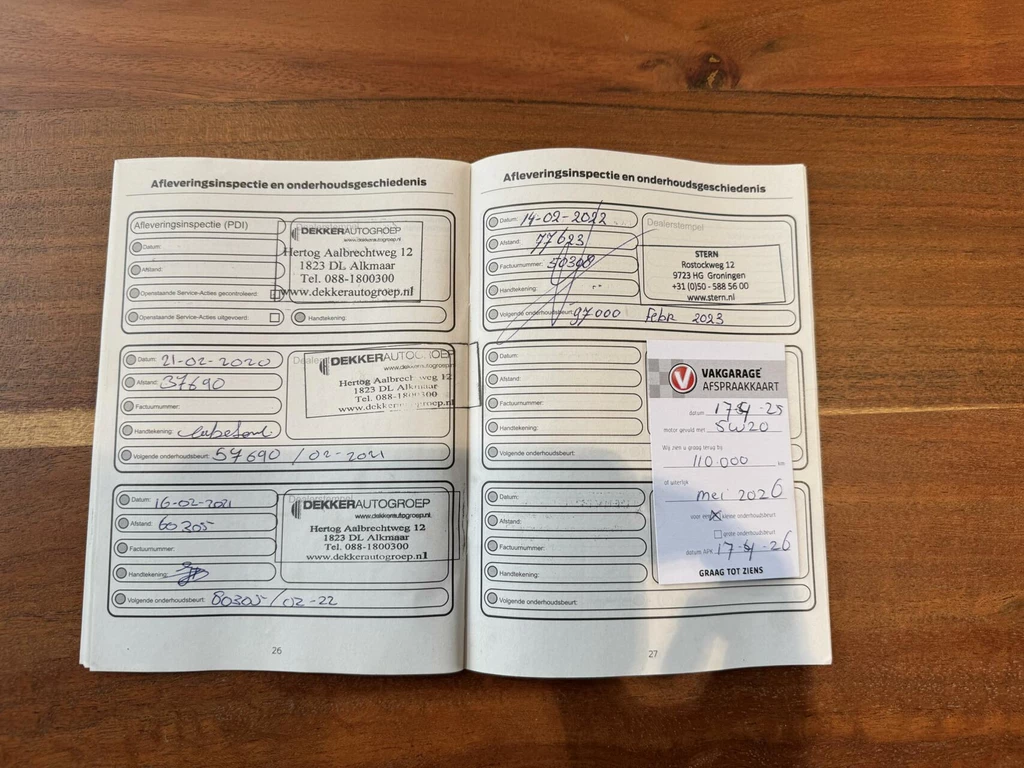 Afleveringsinspectie en onderhoudsgeschiedenis
Afleveringsinspectie (PDI)
Datum:
Afstand:
Openstaande Service-Acties gecontroleerd:
Openstaande Service-Acties uitgevoerd:
Handtekening:
DEKKERAUTOGROEP
www.dekkerautogroep.nl
Hertog Aalbrechtweg 12
1823 DL Alkmaar
Tel. 088-1800300
www.dekkerautogroep.nl
Datum: 21-02-2020
Afstand: 37690
Factuurnummer:
Handtekening:
Volgende onderhoudsbeurt: 57690 / 02-2021
DEKKERAUTOGROEP
Hertog Aalbrechtweg 12
1823 DL Alkmaar
Tel. 088-1800300
www.dekkerautogroep.nl
Datum: 16-02-2021
Afstand: 60305
Factuurnummer:
Handtekening:
Volgende onderhoudsbeurt: 80305 / 02-22
Dealerstempel
DEKKERAUTOGROEP
www.dekkerautogroep.nl
Hertog Aalbrechtweg 12
1823 DL Alkmaar
Tel. 088-1800300
www.dekkerautogroep.nl
26
Afleveringsinspectie en onderhoudsgeschiedenis
Datum: 14-02-2022
Afstand: 77623
Factuurnummer: 50308
Handtekening:
Volgende onderhoudsbeurt: 97000 Febr 2023
Dealerstempel
STERN
Rostockweg 12
9723 HG Groningen
+31 (0)50 - 588 56 00
www.stern.nl
Datum:
Afstand:
Factuurnummer:
Handtekening:
Volgende onderhoudsbeurt:
Datum:
Afstand:
Factuurnummer:
Handtekening:
Volgende onderhoudsbeurt:
VAKGARAGE
AFSPRAAKKAART
datum 17-4-25
motor gevuld met 5W20
Wij zien u graag terug bij
110.000 km
of uiterlijk
mei 2026
voor een X kleine onderhoudsbeurt
grote onderhoudsbeurt
datum APK 17-4-26
GRAAG TOT ZIENS
27